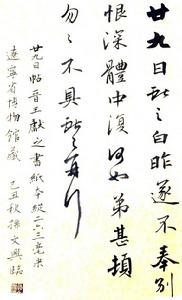 廿九日献之白昨遂不奉別
恨深體中復何如弟甚頓
勿々不具献之再拜
廿九日帖晋王献之書紙本縱二六三毫米
遼寧省博物館藏 己丑秋孫文興臨